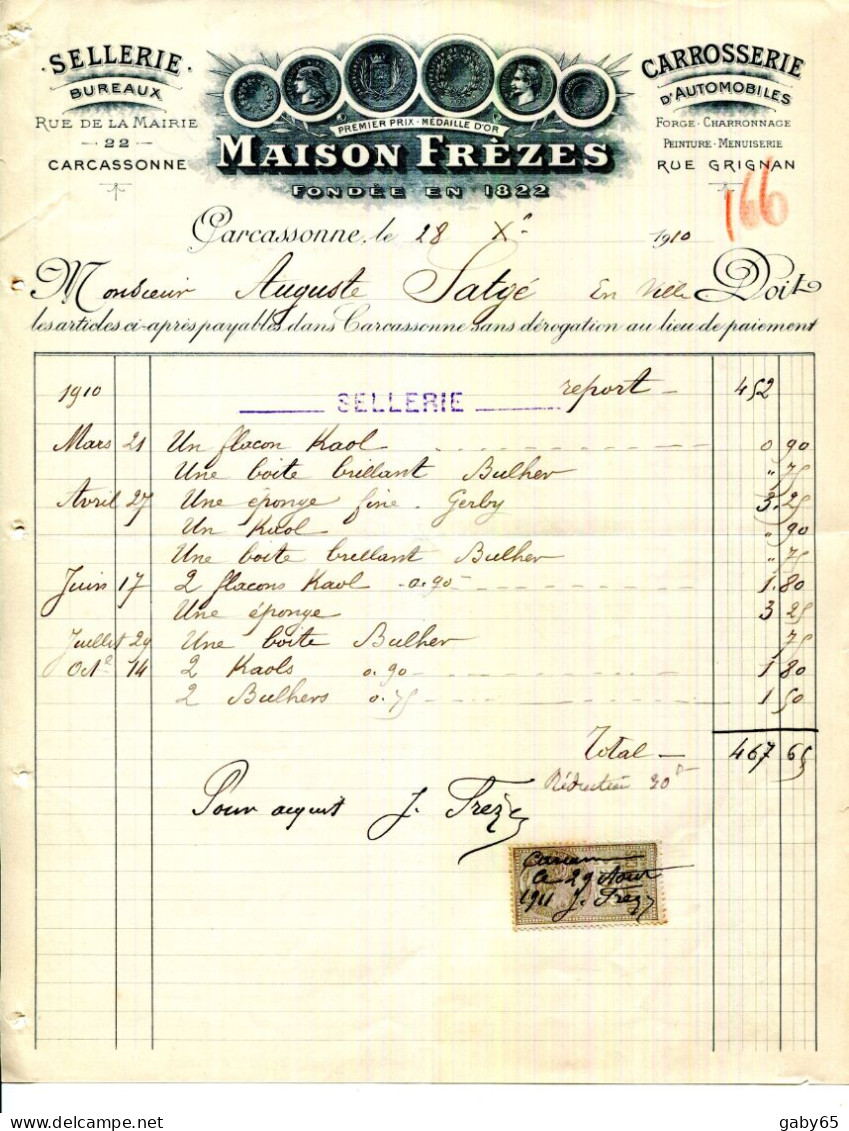 SELLERIE
BUREAUX
RUE DE LA MAIRIE
22
CARCASSONNE
PREMIER PRIX - MÉDAILLE D'OR
MAISON FRÈZES
FONDÉE EN 1822
CARROSSERIE
D'AUTOMOBILES
FORGE - CHARRONNAGE
PEINTURE - MENUISERIE
RUE GRIGNAN
166
Carcassonne, le 28 Xe 1910
Monsieur Auguste Satgé En Ville Doit
les articles ci-après payables dans Carcassonne sans dérogation au lieu de paiement
1910 SELLERIE report 452
Mars 21 Un flacon Kaol 0 90
Une boite brillant Bulher " 75
Avril 27 Une éponge fine Gerby 3.25
Un Kaol " 90
Une boite brillant Bulher " 75
Juin 17 2 flacons Kaol 0.90 1.80
Une éponge 3 25
Juillet 29 Une boite Bulher 75
Octe 14 2 Kaols 0.90 1 80
2 Bulhers 0.75 1 50
Total 467 65
Réduction 20
Pour acquit J. Frèzes
le 29 Aout
1911 J. Frezes
gaby65